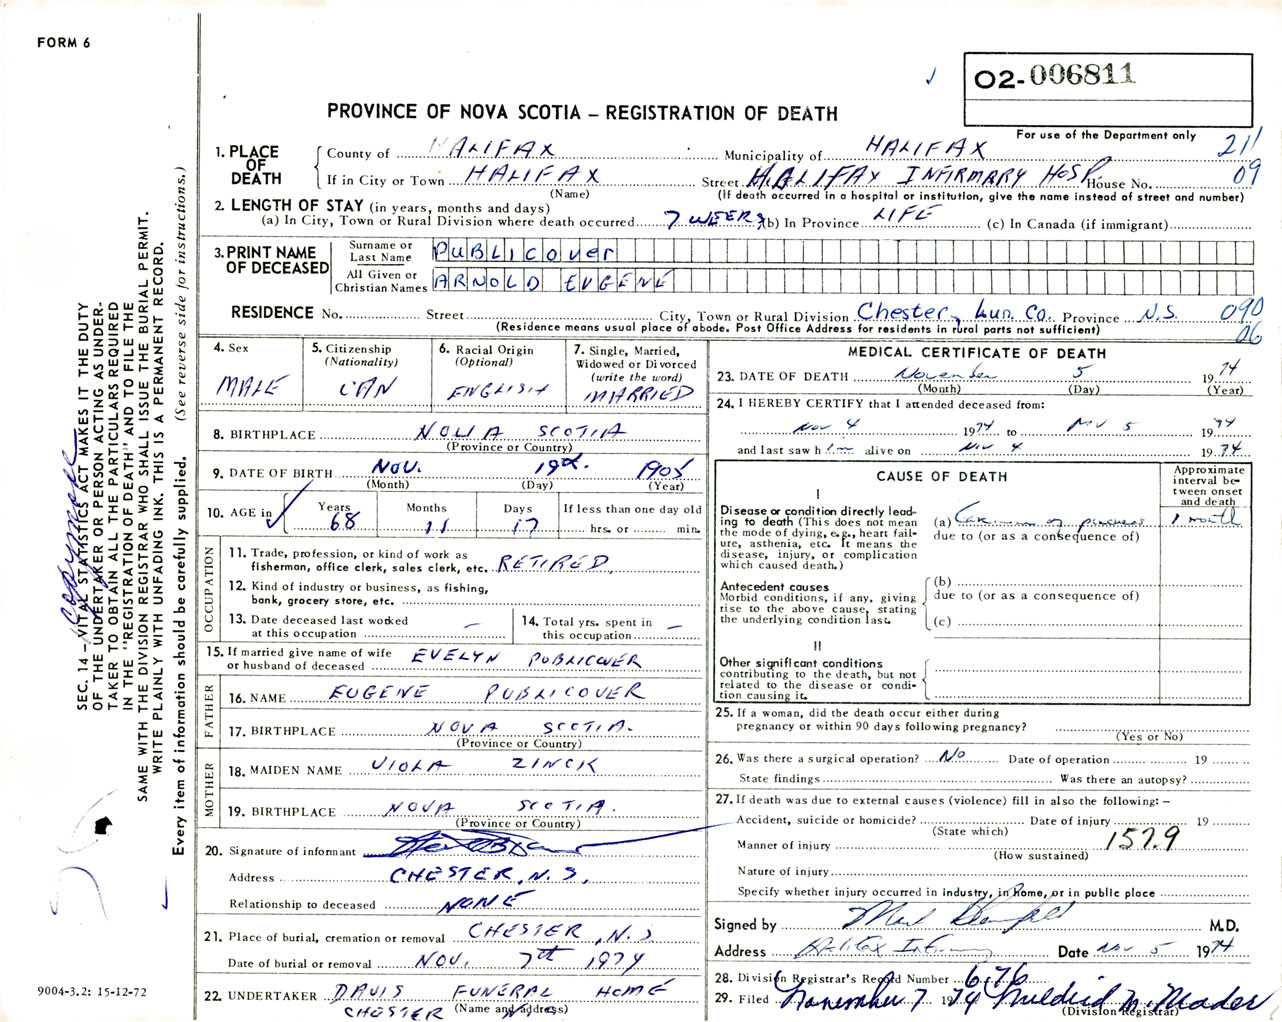 FORM 6
02-006811
PROVINCE OF NOVA SCOTIA – REGISTRATION OF DEATH
For use of the Department only
211
09
1. PLACE OF DEATH
County of HALIFAX Municipality of HALIFAX
If in City or Town HALIFAX Street HALIFAX INFIRMARY HOSP. House No.
(Name) (If death occurred in a hospital or institution, give the name instead of street and number)
2. LENGTH OF STAY (in years, months and days)
(a) In City, Town or Rural Division where death occurred 7 WEEKS (b) In Province LIFE (c) In Canada (if immigrant)
3. PRINT NAME OF DECEASED
Surname or Last Name PUBLICOVER
All Given or Christian Names ARNOLD EUGENE
RESIDENCE No. Street City, Town or Rural Division Chester, Lun. Co. Province N.S. 090
06
(Residence means usual place of abode. Post Office Address for residents in rural parts not sufficient)
4. Sex
MALE
5. Citizenship
(Nationality)
CAN
6. Racial Origin
(Optional)
ENGLISH
7. Single, Married,
Widowed or Divorced
(write the word)
MARRIED
8. BIRTHPLACE NOVA SCOTIA
(Province or Country)
9. DATE OF BIRTH NOV. 19th. 1905
(Month) (Day) (Year)
10. AGE in
Years Months Days If less than one day old
68 11 17 hrs. or min.
OCCUPATION
11. Trade, profession, or kind of work as
fisherman, office clerk, sales clerk, etc. RETIRED
12. Kind of industry or business, as fishing,
bank, grocery store, etc.
13. Date deceased last worked
at this occupation –
14. Total yrs. spent in
this occupation –
15. If married give name of wife
or husband of deceased EVELYN PUBLICOVER
FATHER
16. NAME EUGENE PUBLICOVER
17. BIRTHPLACE NOVA SCOTIA.
(Province or Country)
MOTHER
18. MAIDEN NAME VIOLA ZINCK
19. BIRTHPLACE NOVA SCOTIA.
(Province or Country)
20. Signature of informant
Address CHESTER, N.S.
Relationship to deceased NONE
21. Place of burial, cremation or removal CHESTER, N.S
Date of burial or removal NOV. 7th 1974
22. UNDERTAKER DAVIS FUNERAL HOME
CHESTER N.S. (Name and address)
MEDICAL CERTIFICATE OF DEATH
23. DATE OF DEATH November 5 1974
(Month) (Day) (Year)
24. I HEREBY CERTIFY that I attended deceased from:
Nov 4 1974 to Nov 5 1974
and last saw him alive on Nov 4 1974
CAUSE OF DEATH
Approximate
interval be-
tween onset
and death
I
Disease or condition directly lead-
ing to death (This does not mean
the mode of dying, e.g., heart fail-
ure, asthenia, etc. It means the
disease, injury, or complication
which caused death.)
(a) Carcinoma of pancreas 1 month
due to (or as a consequence of)
Antecedent causes
Morbid conditions, if any, giving
rise to the above cause, stating
the underlying condition last.
(b)
due to (or as a consequence of)
(c)
II
Other significant conditions
contributing to the death, but not
related to the disease or condi-
tion causing it.
25. If a woman, did the death occur either during
pregnancy or within 90 days following pregnancy?
(Yes or No)
26. Was there a surgical operation? No Date of operation 19
State findings Was there an autopsy?
27. If death was due to external causes (violence) fill in also the following: –
Accident, suicide or homicide? Date of injury 19
(State which) 157.9
Manner of injury
(How sustained)
Nature of injury
Specify whether injury occurred in industry, in home, or in public place
Signed by M.D.
Address Halifax Infirmary Date Nov 5 1974
28. Division Registrar's Record Number 676
29. Filed November 7 1974 Mildred N. Mader
(Division Registrar)
SEC. 14 – VITAL STATISTICS ACT MAKES IT THE DUTY
OF THE UNDERTAKER OR PERSON ACTING AS UNDER-
TAKER TO OBTAIN ALL THE PARTICULARS REQUIRED
IN THE "REGISTRATION OF DEATH" AND TO FILE THE
SAME WITH THE DIVISION REGISTRAR WHO SHALL ISSUE THE BURIAL PERMIT.
WRITE PLAINLY WITH UNFADING INK. THIS IS A PERMANENT RECORD.
Every item of information should be carefully supplied. (See reverse side for instructions.)
9004-3.2: 15-12-72